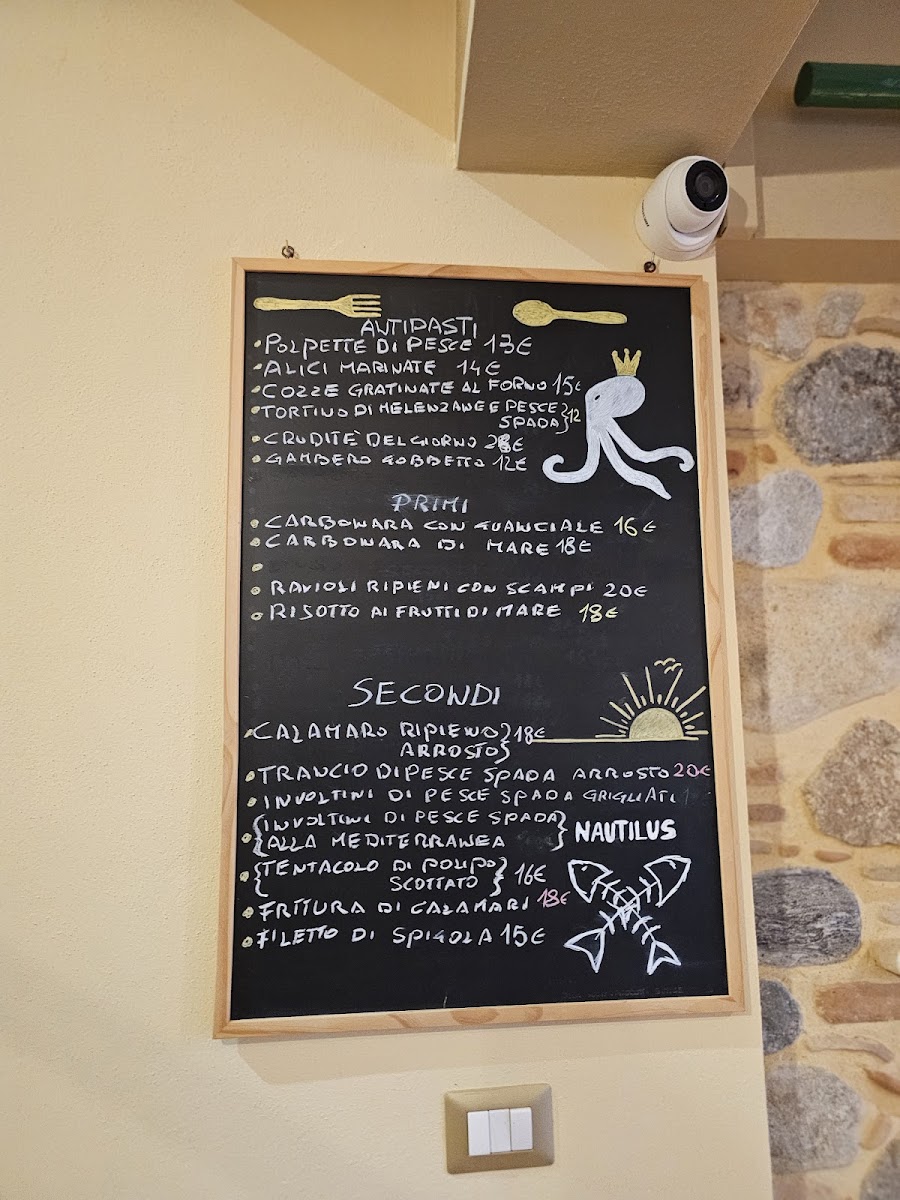 ANTIPASTI
• POLPETTE DI PESCE 13€
• ALICI MARINATE 14€
• COZZE GRATINATE AL FORNO 15€
• TORTINO DI MELENZANE E PESCE
SPADA } 12
• CRUDITÈ DEL GIORNO €
• GAMBERO GOBBETTO 12€
PRIMI
• CARBONARA CON GUANCIALE 16€
• CARBONARA DI MARE 18€
•
• RAVIOLI RIPIENI CON SCAMPI 20€
• RISOTTO AI FRUTTI DI MARE 18€
SECONDI
• CALAMARO RIPIENO } 18€
ARROSTO }
• TRANCIO DI PESCE SPADA ARROSTO 20€
• INVOLTINI DI PESCE SPADA GRIGLIATI
• { INVOLTINI DI PESCE SPADA
ALLA MEDITERRANEA }
NAUTILUS
• { TENTACOLO DI POLIPO } 16€
SCOTTATO
• FRITTURA DI CALAMARI 18€
• FILETTO DI SPIGOLA 15€